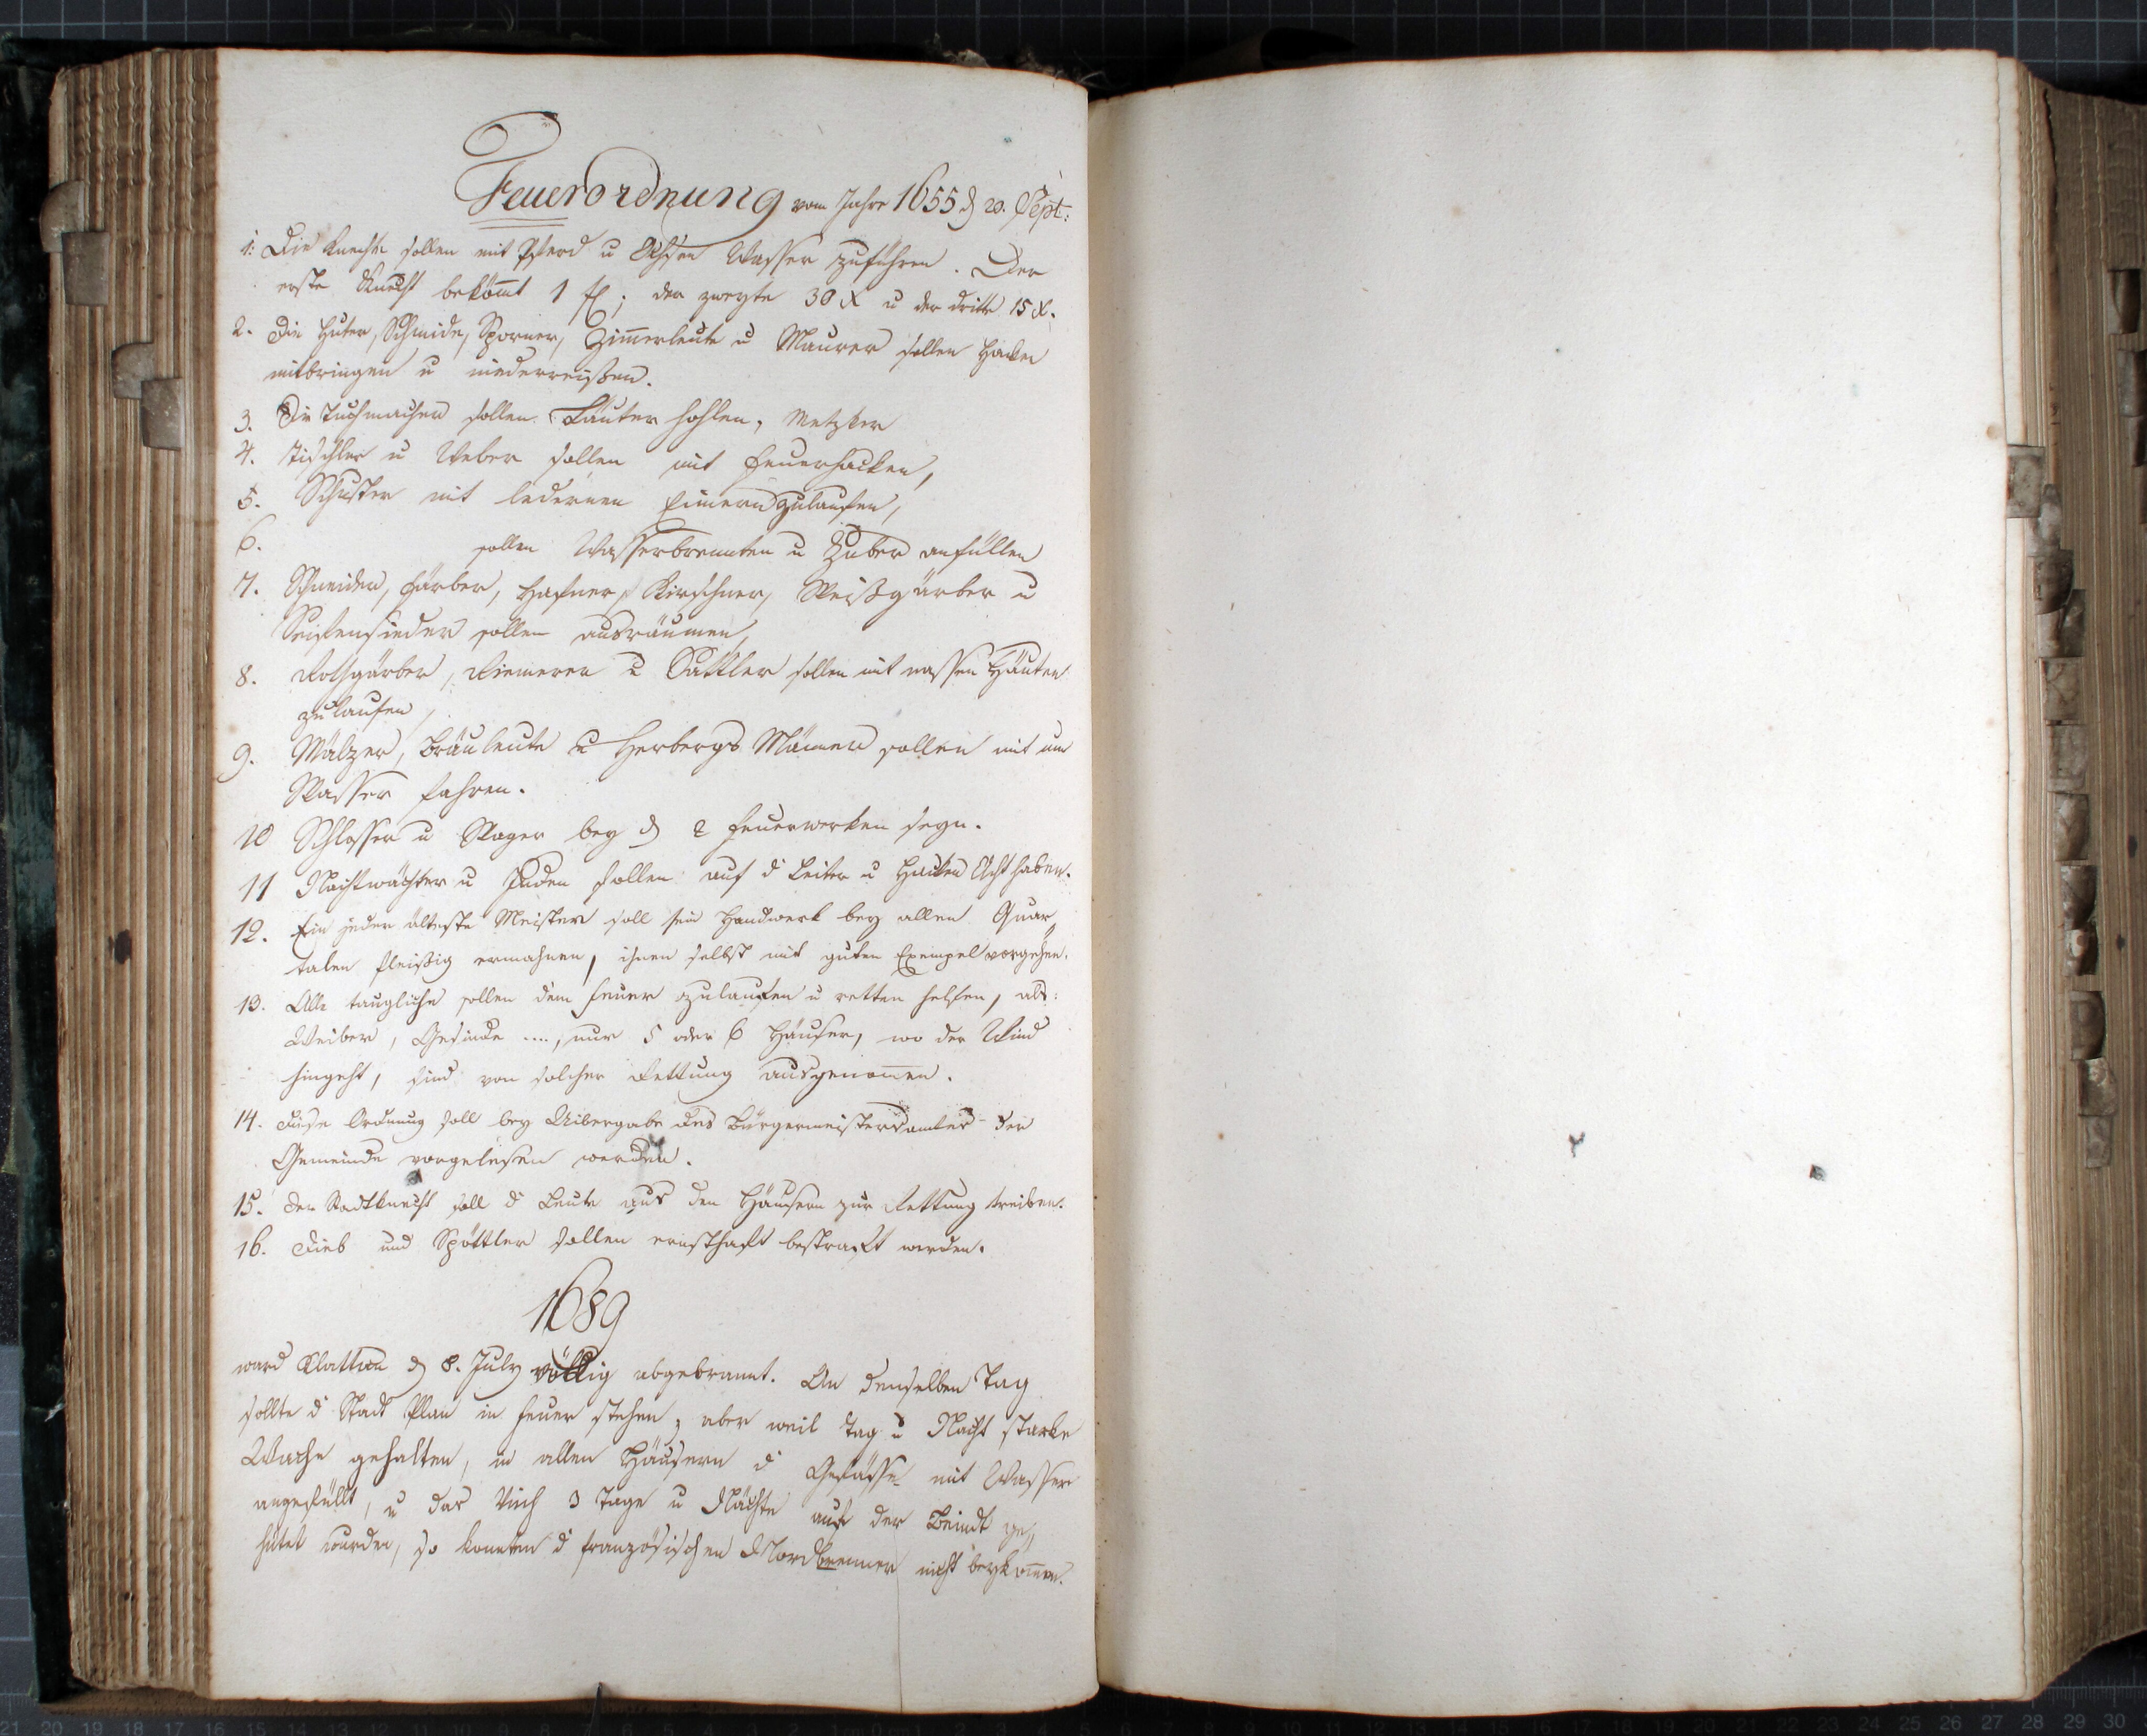 Feuerordnung vom Jahre 1655 d 20. Sept:
1. Die Knechte sollen mit Pferd u Ochsen Wasser zuführen. Der
erste Knecht bekömt 1 fl; der zweyte 30 x u der dritte 15 x.
2. Die Huter, Schmide, Sporner, Zimerleute u Maurer sollen Hacken
mitbringen u niederreißen.
3. Die Tuchmacher sollen Läuter hohlen, Metzker
4. Tischler u Weber sollen mit Feuerhacken,
5. Schuster mit ledernen Eimern zulaufen,
6. sollen Wasserbrennten u Zuber anfüllen
7. Schneider, Färber, Hafner, Kirschner, Weißgärber u
Seifensieder sollen ausräumen,
8. Rothgärber, Riemerer u Sattler sollen mit nassen Häuten
zulaufen,
9. Mälzer, Bräuleute u Herbergs Männer sollen mit um
Wasser fahren.
10 Schlosser u Wager bey d 2 Feuerwerken seyn.
11 Nachtwächter u Juden sollen auf d Leiter u Hacken Acht haben.
12. Ein jeder älteste Meister soll sein Handwerk bey allen Quar
talen fleißig ermahnen, ihnen selbst mit guten Exempel vorgehen.
13. Alle taugliche sollen dem Feuer zulaufen u retten helfen, als:
Weiber, Gesinde ...., nur 5 oder 6 Häuser, wo der Wind
hingeht, sind von solcher Rettung ausgenomen.
14. Diese Ordnung soll bey Uibergabe des Bürgermeistersamtes der
Gemeinde vorgelesen werden.
15. Der Stadtknecht soll d Leute aus den Häusern zur Rettung treiben.
16. Dieb und Spöttler sollen ernsthaft bestraft werden.
1689
ward Klattau d 8. July völlig abgebrannt. An denselben Tag
sollte d Stadt Plan in Feuer stehen, aber weil Tag u Nacht starke
Wache gehalten, in allen Häusern d Gefässe mit Wasser
angefüllt, u das Vieh 3 Tage u Nächte auf der Beindt ge
hütet wurden, so konnten d französischen Mordbrenner nicht beykomen.